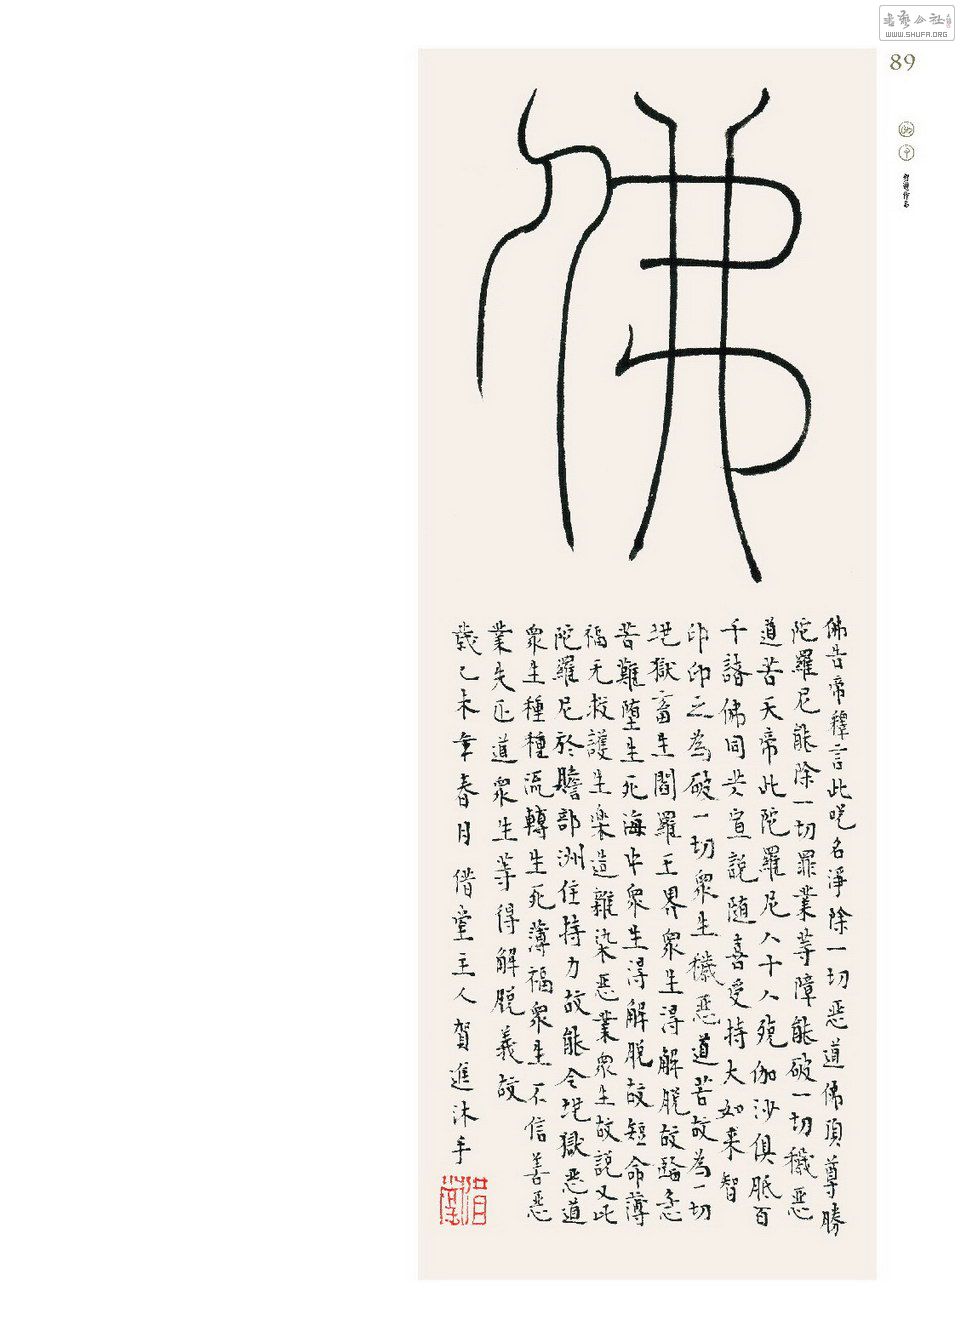 佛
佛告帝釋言此咒名淨除一切惡道佛頂尊勝
陀羅尼能除一切罪業等障能破一切穢惡
道苦天帝此陀羅尼八十八殑伽沙俱胝百
千諸佛同共宣說隨喜受持大如來智
印印之為破一切眾生穢惡道苦故為一切
地獄畜生閻羅王界眾生得解脫故臨急
苦難墮生死海中眾生得解脫故短命薄
福无救護生樂造雜染惡業眾生故說又此
陀羅尼於贍部洲住持力故能令地獄惡道
眾生種種流轉生死薄福眾生不信善惡
業失正道眾生等得解脫義故
歲乙未年春月 借堂主人賀進沐手
借堂
89
書藝公社
WWW.SHUFA.ORG